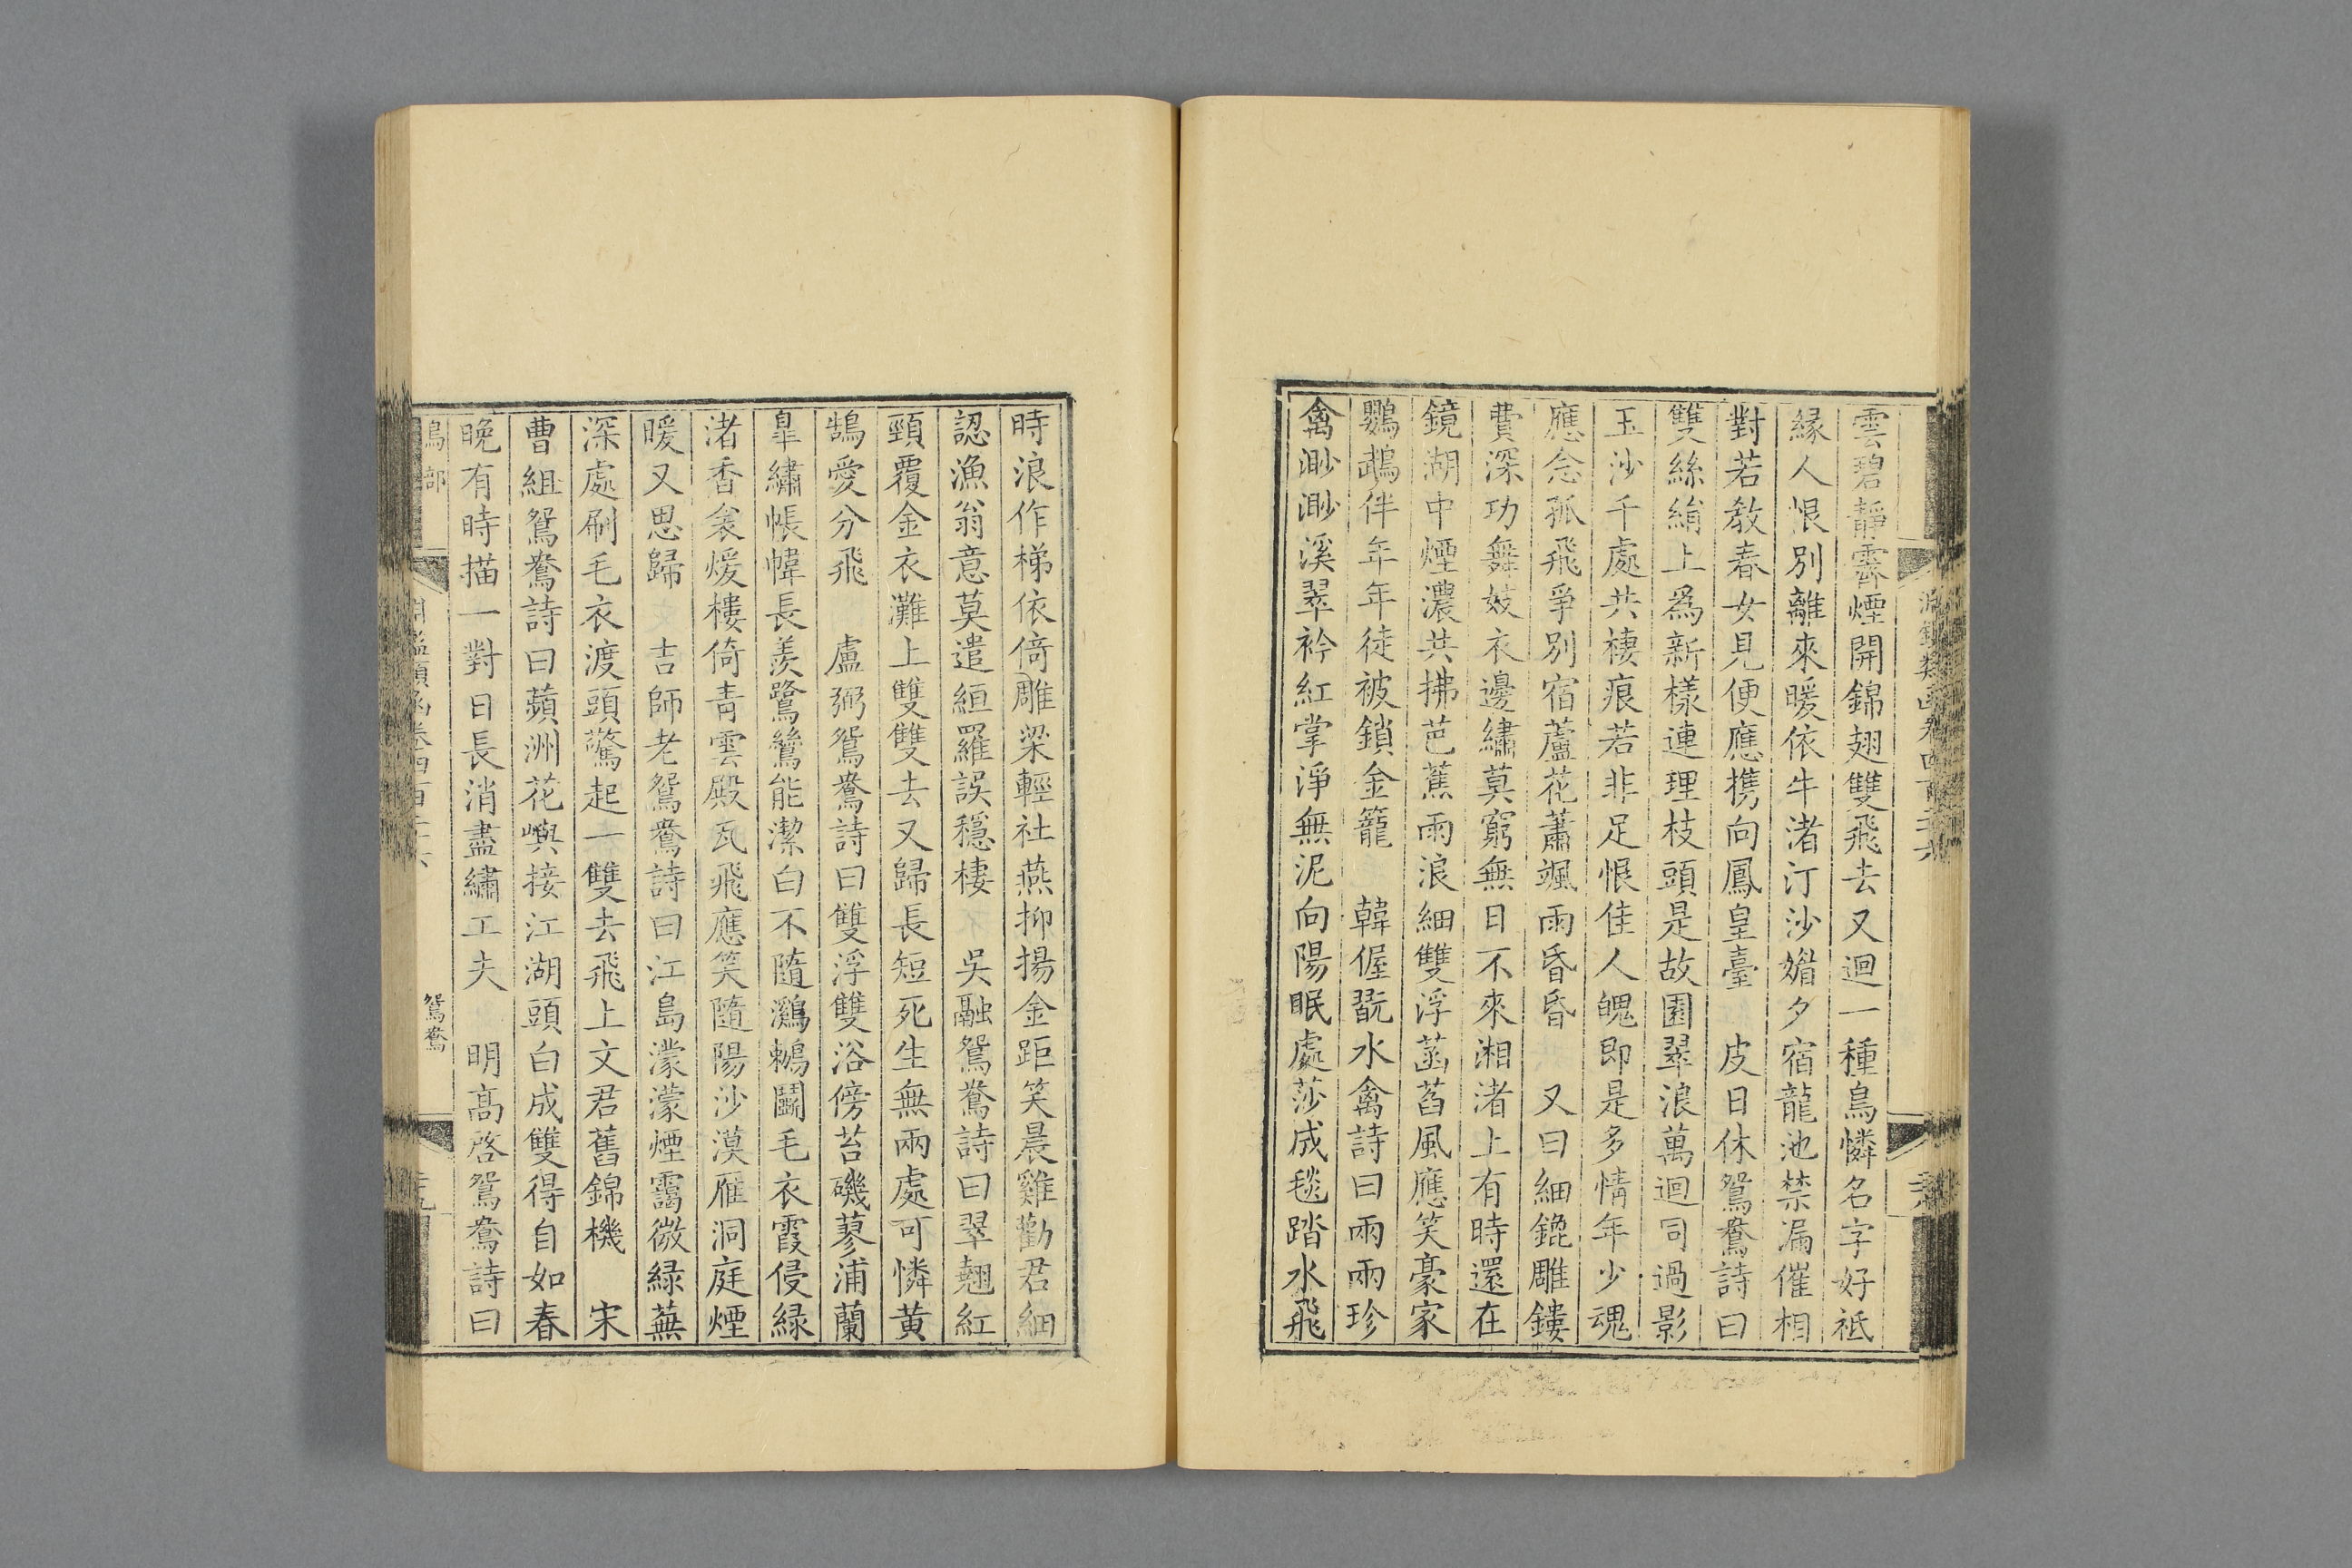 雲碧靜霽煙開錦翅雙飛去又迴一種鳥憐名字好祗
緣人恨別離來暖依牛渚汀沙媚夕宿龍池禁漏催相
對若教春女見便應携向鳳皇臺 皮日休鴛鴦詩曰
雙絲絹上爲新樣連理枝頭是故園翠浪萬迴同過影
玉沙千處共棲痕若非足恨佳人魄即是多情年少魂
應念孤飛爭別宿蘆花蕭颯雨昏昏 又曰細鎞雕鏤
費深功舞妓衣邊繡莫窮無日不來湘渚上有時還在
鏡湖中煙濃共拂芭蕉雨浪細雙浮菡萏風應笑豪家
鸚鵡伴年年徒被鎖金籠 韓偓翫水禽詩曰兩兩珍
禽渺渺溪翠衿紅掌淨無泥向陽眠處莎成毯踏水飛
時浪作梯依倚雕梁輕社燕抑揚金距笑晨雞勸君細
認漁翁意莫遣絙羅誤穩棲 吳融鴛鴦詩曰翠翹紅
頸覆金衣灘上雙雙去又歸長短死生無兩處可憐黃
鵠愛分飛 盧弼鴛鴦詩曰雙浮雙浴傍苔磯蓼浦蘭
皐繡帳幃長羨鷺鷥能潔白不隨鸂鶒鬭毛衣霞侵綠
渚香衾煖樓倚青雲殿瓦飛應笑隨陽沙漠雁洞庭煙
暖又思歸 吉師老鴛鴦詩曰江島濛濛煙靄微綠蕪
深處刷毛衣渡頭驚起一雙去飛上文君舊錦機 宋
曹組鴛鴦詩曰蘋洲花嶼接江湖頭白成雙得自如春
晚有時描一對日長消盡繡工夫 明高啓鴛鴦詩曰
鳥部
鴛鴦